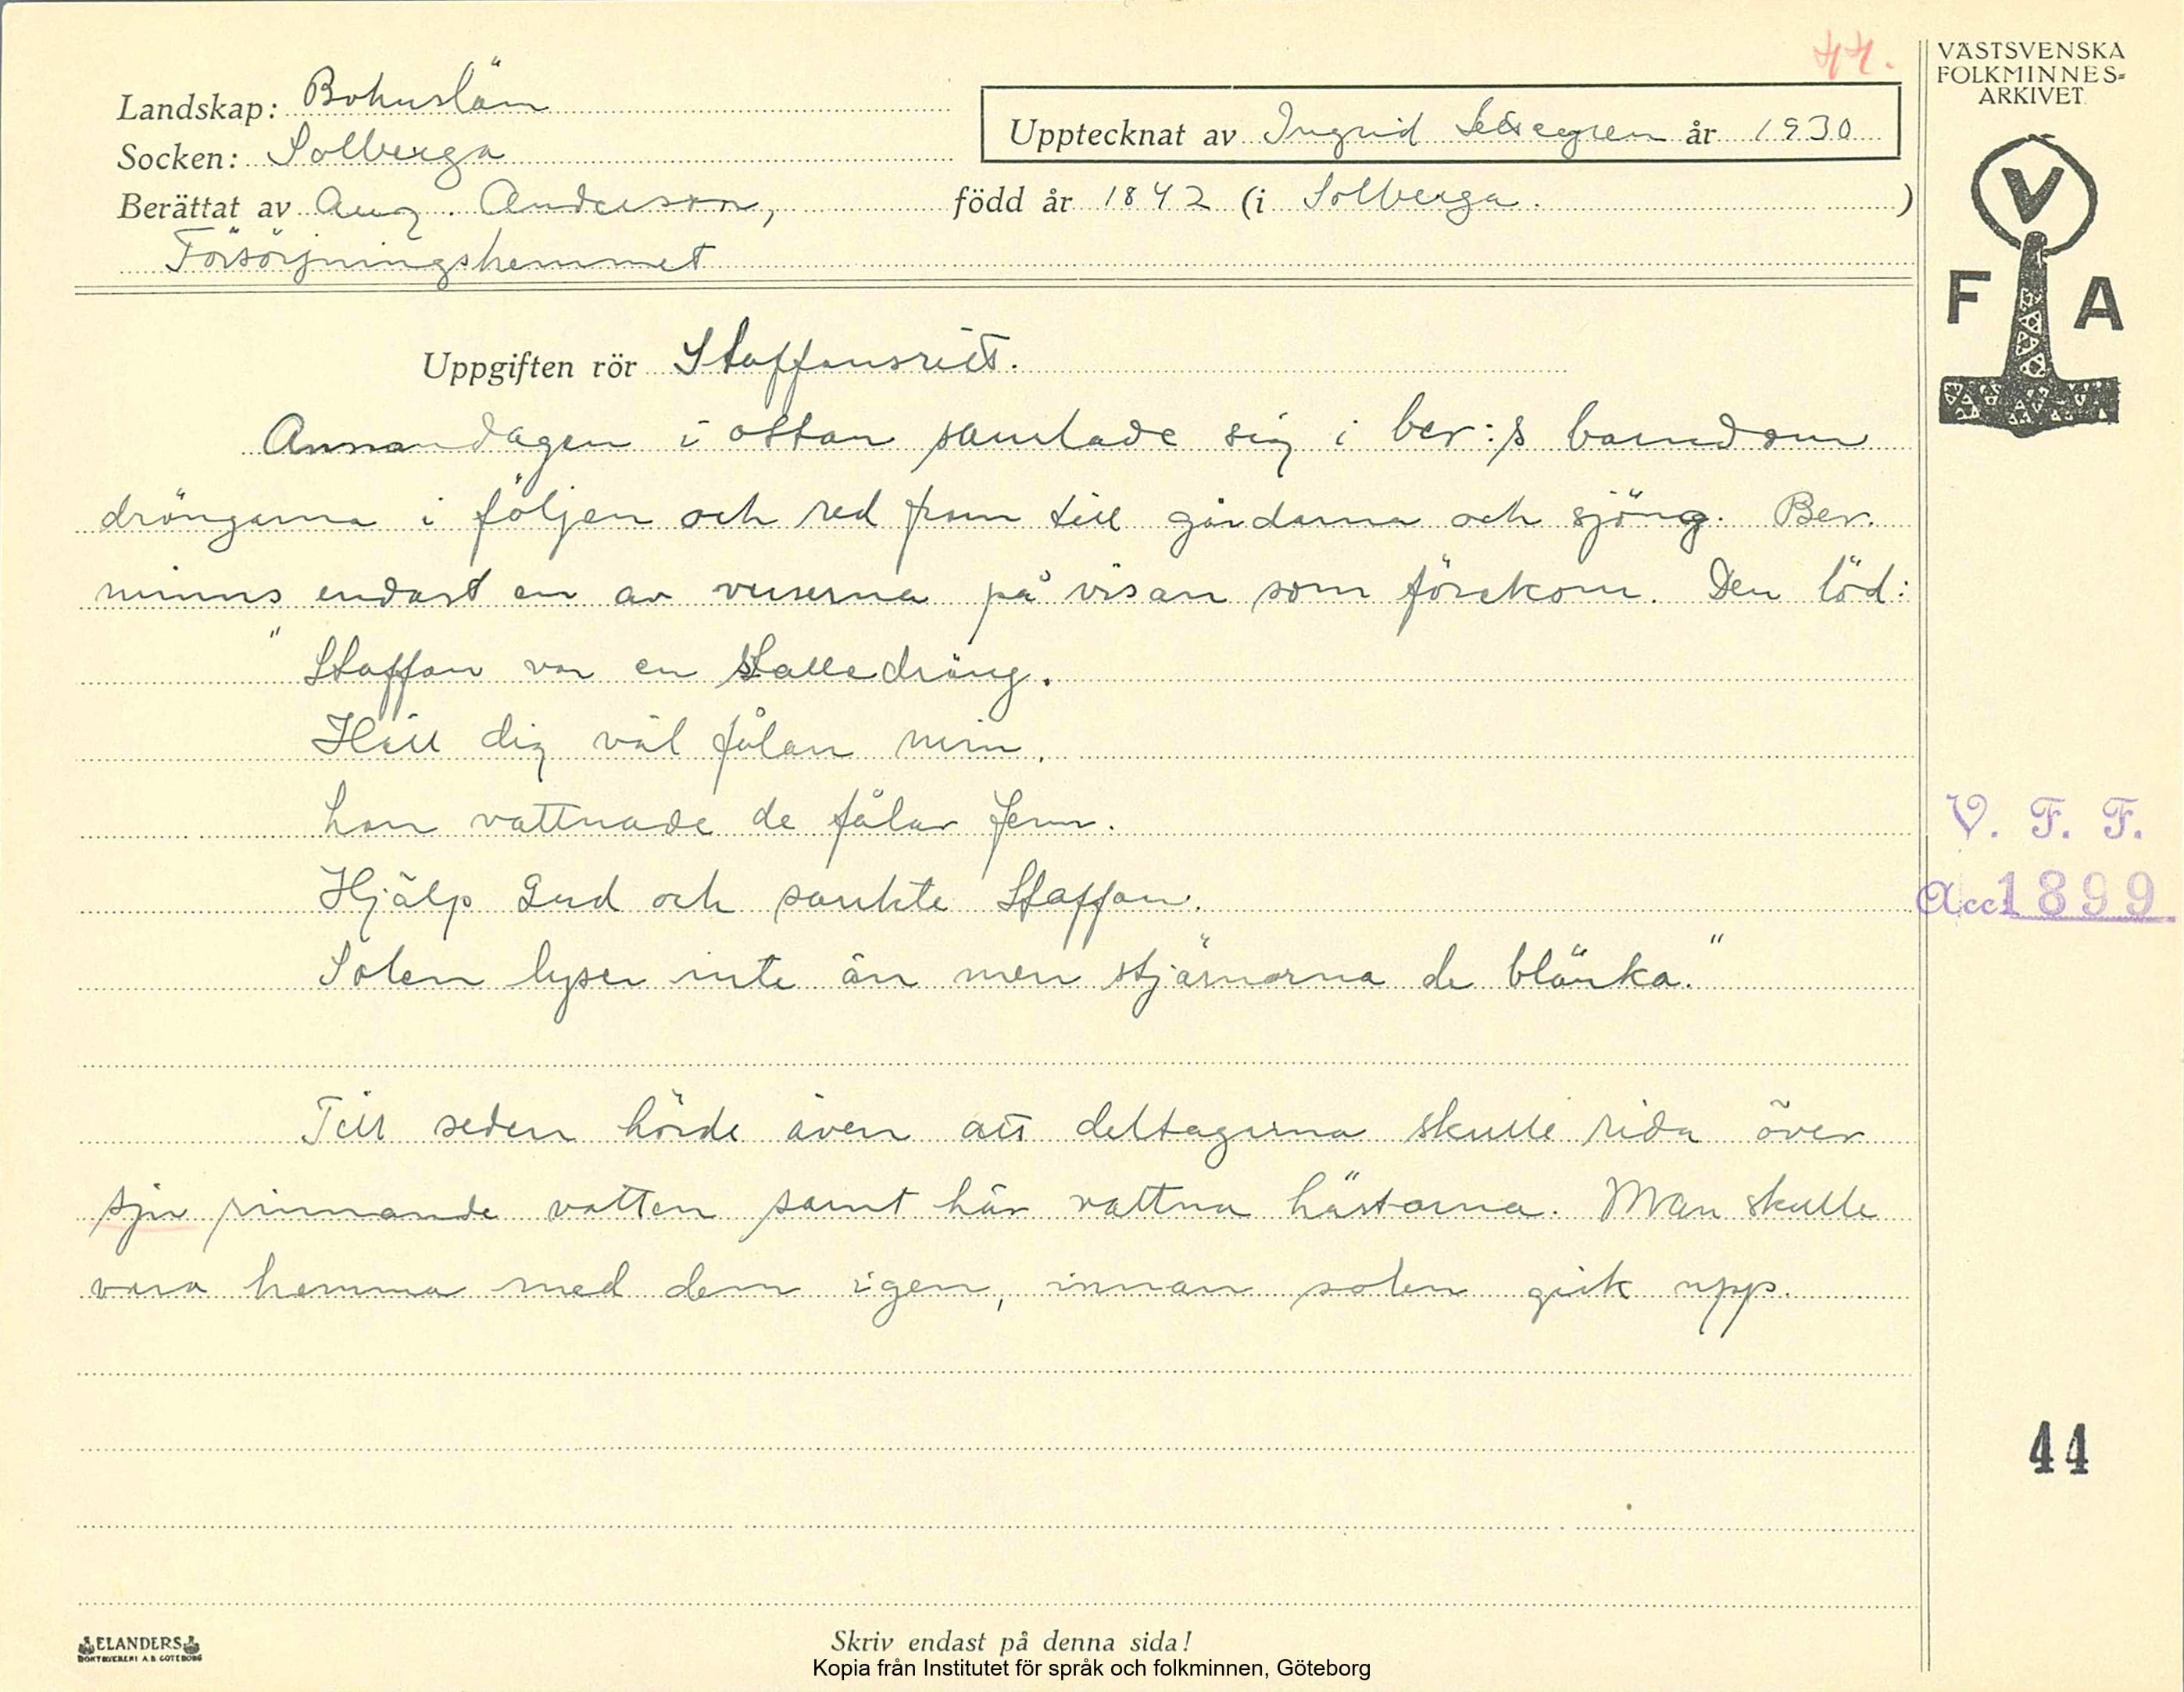 44.
VÄSTSVENSKA
FOLKMINNES-
ARKIVET
Landskap: Bohuslän
Socken: Solberga
Upptecknat av Ingrid år 1930
Berättat av Aug. Anderson, född år 1842 (i Solberga. )
Försörjningshemmet
V
F A
Uppgiften rör Staffansritt.
Annandagen i ottan samlade sig i ber:s barndom
drängarna i följen och red fram till gårdarna och sjöng. Ber.
minns endast en av verserna på visan som förekom. Den löd:
" Staffan var en stalledräng.
Håll dig väl fålan min.
han vattnade de fålar fem.
Hjälp Gud och sankte Staffan.
Solen lyser inte än men stjärnorna de blänka."
V. F. F.
Acc. 1899.
Till seden hörde även att deltagarna skulle rida över
sju rinnande vatten samt här vattna hästarna. Man skulle
vara hemma med dem igen, innan solen gick upp.
44
ELANDERS
BOKTRYCKERI A.B. GÖTEBORG
Skriv endast på denna sida!
Kopia från Institutet för språk och folkminnen, Göteborg